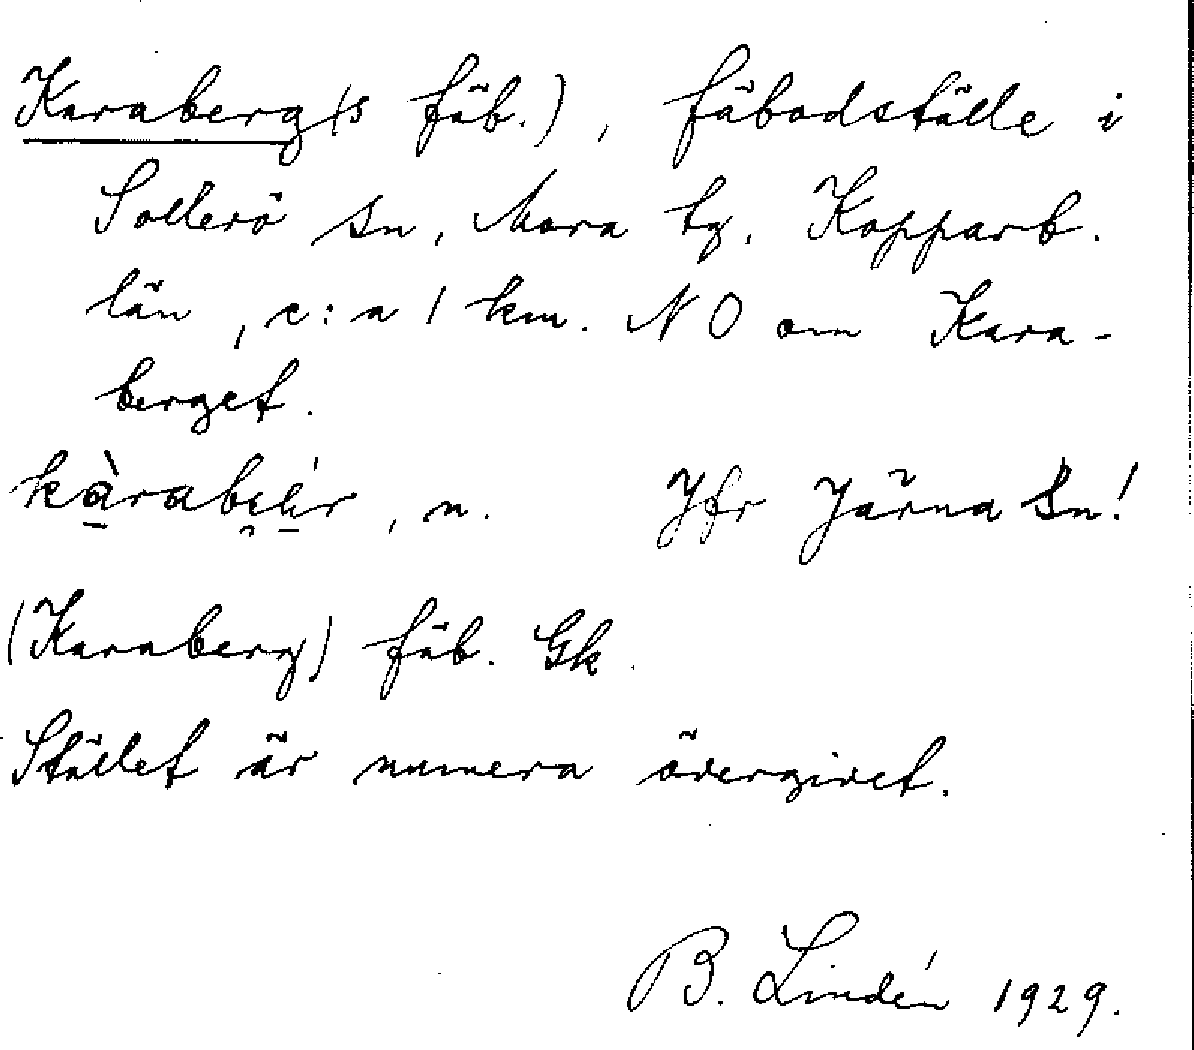 Karaberg(s fäb.), fäbodställe i
Sollerö sn, Mora tg, Kopparb.
län, c:a 1 km. NO om Kara-
berget.
, n. Jfr Järna sn!
(Karaberg) fäb. Gk.
Stället är numera övergivet.
B. Lindén 1929.